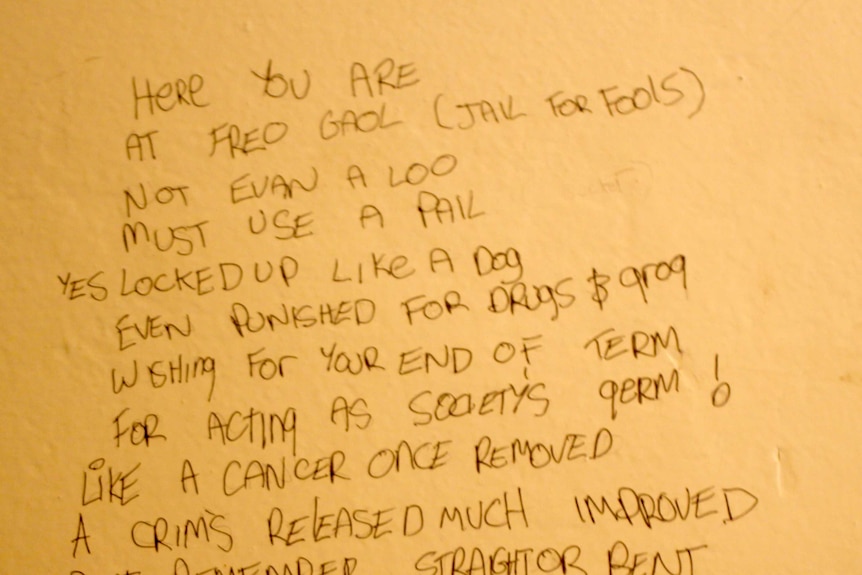 HERE YOU ARE
AT FREO GAOL (JAIL FOR FOOLS)
NOT EVAN A LOO
MUST USE A PAIL
YES LOCKED UP LIKE A DOG
EVEN PUNISHED FOR DRUGS $ grog
WISHING FOR YOUR END OF TERM
FOR ACTING AS SOCIETY'S gERM !
LIKE A CANCER ONCE REMOVED
A CRIM'S RELEASED MUCH IMPROVED
REMEMBER STRAIGHT OR BENT